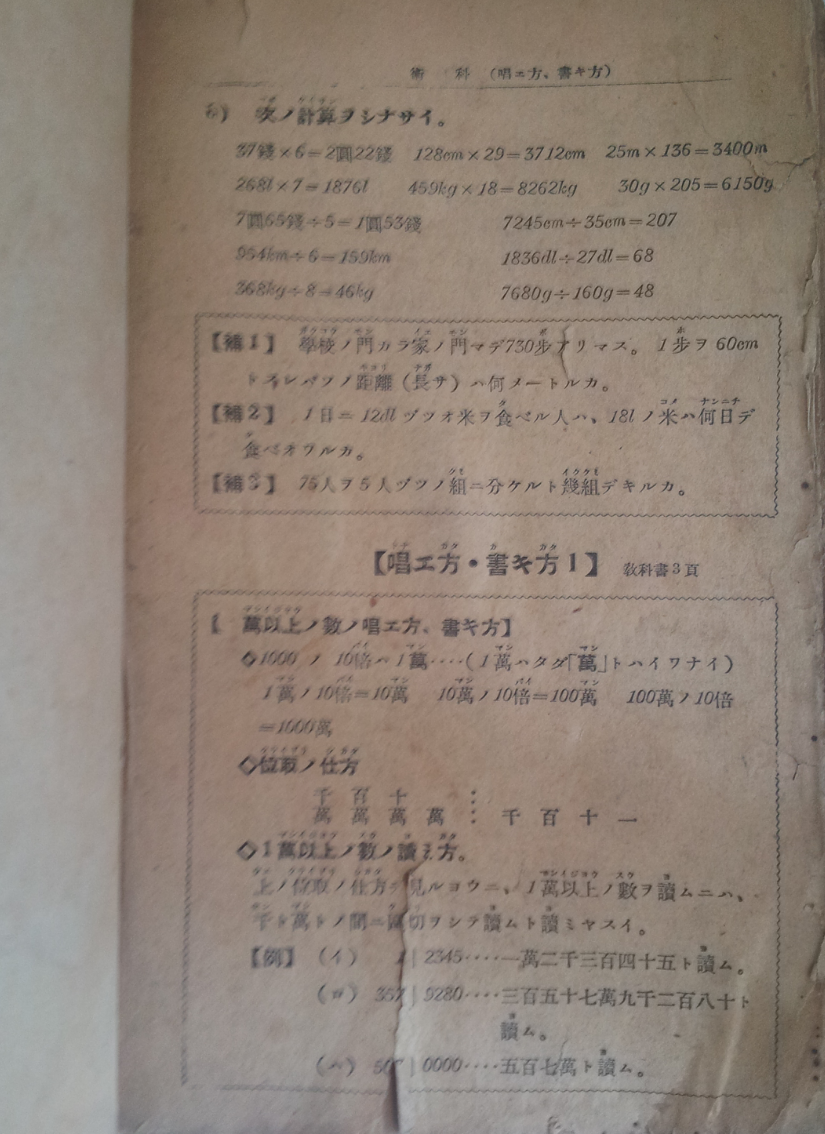 術　科　(唱エ方、書キ方)
6)　次ノ計算ヲシナサイ。
37錢×6=2圓22錢　128cm×29=3712cm　25m×136=3400m
268l×7=1876l　459kg×18=8262kg　30g×205=6150g
7圓65錢÷5=1圓53錢　7245cm÷35cm=207
954km÷6=159km　1836dl÷27dl=68
368kg÷8=46kg　7680g÷160g=48
【補1】　學校ノ門カラ家ノ門マデ730歩アリマス。1歩ヲ60cm
距離(長サ)ハ何メートルカ。
【補2】　1日ニ12dlヅツオ米ヲ食ベル人ハ、18lノ米ハ何日デ
食ベオワルカ。
【補3】　75人ヲ5人ヅツノ組ニ分ケルト幾組デキルカ。
【唱エ方・書キ方1】　敎科書3頁
萬以上ノ數ノ唱エ方、書キ方】
◇1000ノ10倍ハ1萬‥‥(1萬ハタダ「萬」トハイワナイ)
1萬ノ10倍=10萬　10萬ノ10倍=100萬　100萬ノ10倍
=1000萬
◇位取ノ仕方
千　百　十　：
萬　萬　萬　萬　：　千　百　十　一
◇1萬以上ノ數ノ讀ミ方。
上ノ位取ノ仕方 見ルヨウニ、1萬以上ノ數ヲ讀ムニハ、
千ト萬トノ間ニ區切ヲシテ讀ムト讀ミヤスイ。
【例】　(イ)　1|2345‥‥一萬二千三百四十五ト讀ム。
(ロ)　357|9280‥‥三百五十七萬九千二百八十ト
讀ム。
(ハ)　507|0000‥‥五百七萬ト讀ム。